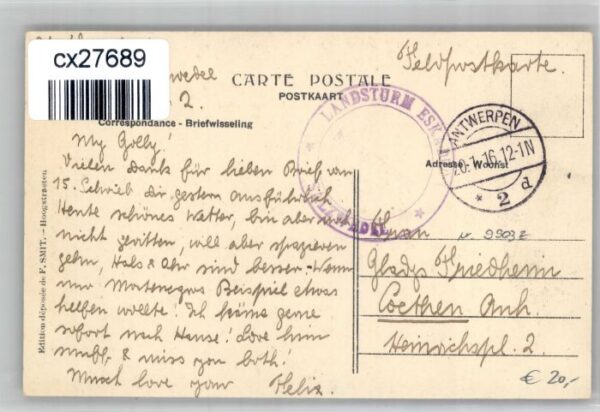 cx27689
Feldpostkarte.
CARTE POSTALE
POSTKAART
Correspondance - Briefwisseling
Adresse - Woonst
LANDSTURM ESK
ANTWERPEN
20.1.16.12-1N
* 2 d
2.
My Golly!
Vielen Dank für lieben Brief von
15. Schrieb dir gestern ausführlich
Heute schönes Wetter, bin aber noch
nicht geritten, will aber spazieren
gehn, Hals & Ohr sind besser. Wenn
nur Montenegros Beispiel etwas
helfen wollte! Ich käme gerne
sofort nach Hause! Love him
& miss you both!
Much love your Felix.
Frau
Gladys Friedheim
Coethen Anh.
Heinrichspl. 2.
Edition déposée de F. SMIT, - Hoogstraeten
€ 20,-